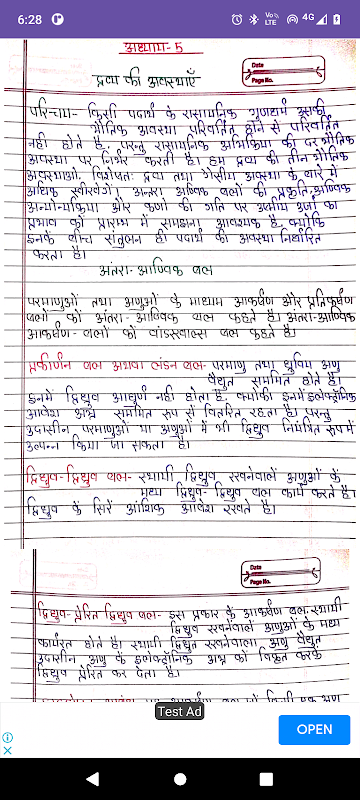 6:28
Vo LTE
4G
अध्याय-5
द्रव्य की अवस्थाएँ
Date
Page No.
परिचय- किसी पदार्थ के रासायनिक गुणधर्म उसकी
भौतिक अवस्था परिवर्तित होने से परिवर्तित
नही होते है, परन्तु रासायनिक अभिक्रिया की दर भौतिक
अवस्था पर निर्भर करती है। हम द्रव्य की तीन भौतिक
अवस्थाओं, विशेषतः द्रव्य तथा गैसीय अवस्था के बारे में
अधिक सीखेंगे। अन्तरा आण्विक बलों की प्रकृति, आण्विक
अन्योन्यक्रिया और कणों की गति पर उष्मीय उर्जा का
प्रभाव को प्रारम्भ में समझना आवश्यक है, क्योंकि
इनके बीच संतुलन ही पदार्थ की अवस्था निर्धारित
करता है।
अंतरा-आण्विक बल
परमाणुओं तथा अणुओं के माध्यम आकर्षण और प्रतिकर्षण
बलों को अंतरा-आण्विक बल कहते है। अंतरा-आण्विक
आकर्षण-बलों को वांडरवाल्स बल कहते है।
प्रकीर्णन बल अथवा लंडन बल- परमाणु तथा ध्रुविय अणु
वैद्युत सममित होते है।
इनमें द्विध्रुव आघूर्ण नही होता है, क्योकी इनमें इलेक्ट्रॉनिक
आवेश अभ्र सममित रूप से वितरित रहता है। परन्तु
उदासीन परमाणुओं या अणुओं में भी द्विध्रुव नियंत्रित रूप में
उत्पन्न किया जा सकता है।
द्विध्रुव-द्विध्रुव बल- स्थायी द्विध्रुव रखनेवालें अणुओं के
मध्य द्विध्रुव-द्विध्रुव बल कार्य करते है।
द्विध्रुव के सिरें आंशिक आवेश रखते है।
Date
Page No.
द्विध्रुव-प्रेरित द्विध्रुव बल- इस प्रकार के आकर्षण बल स्थायी
द्विध्रुव रखनेवालें अणुओं के मध्य
कार्यरत होते है। स्थायी द्विध्रुत रखनेवाला अणु वैद्युत
उदासीन अणु के इलेक्ट्रॉनिक अभ्र को विकृत करके
द्विध्रुव प्रेरित कर देता है।
Test Ad
OPEN